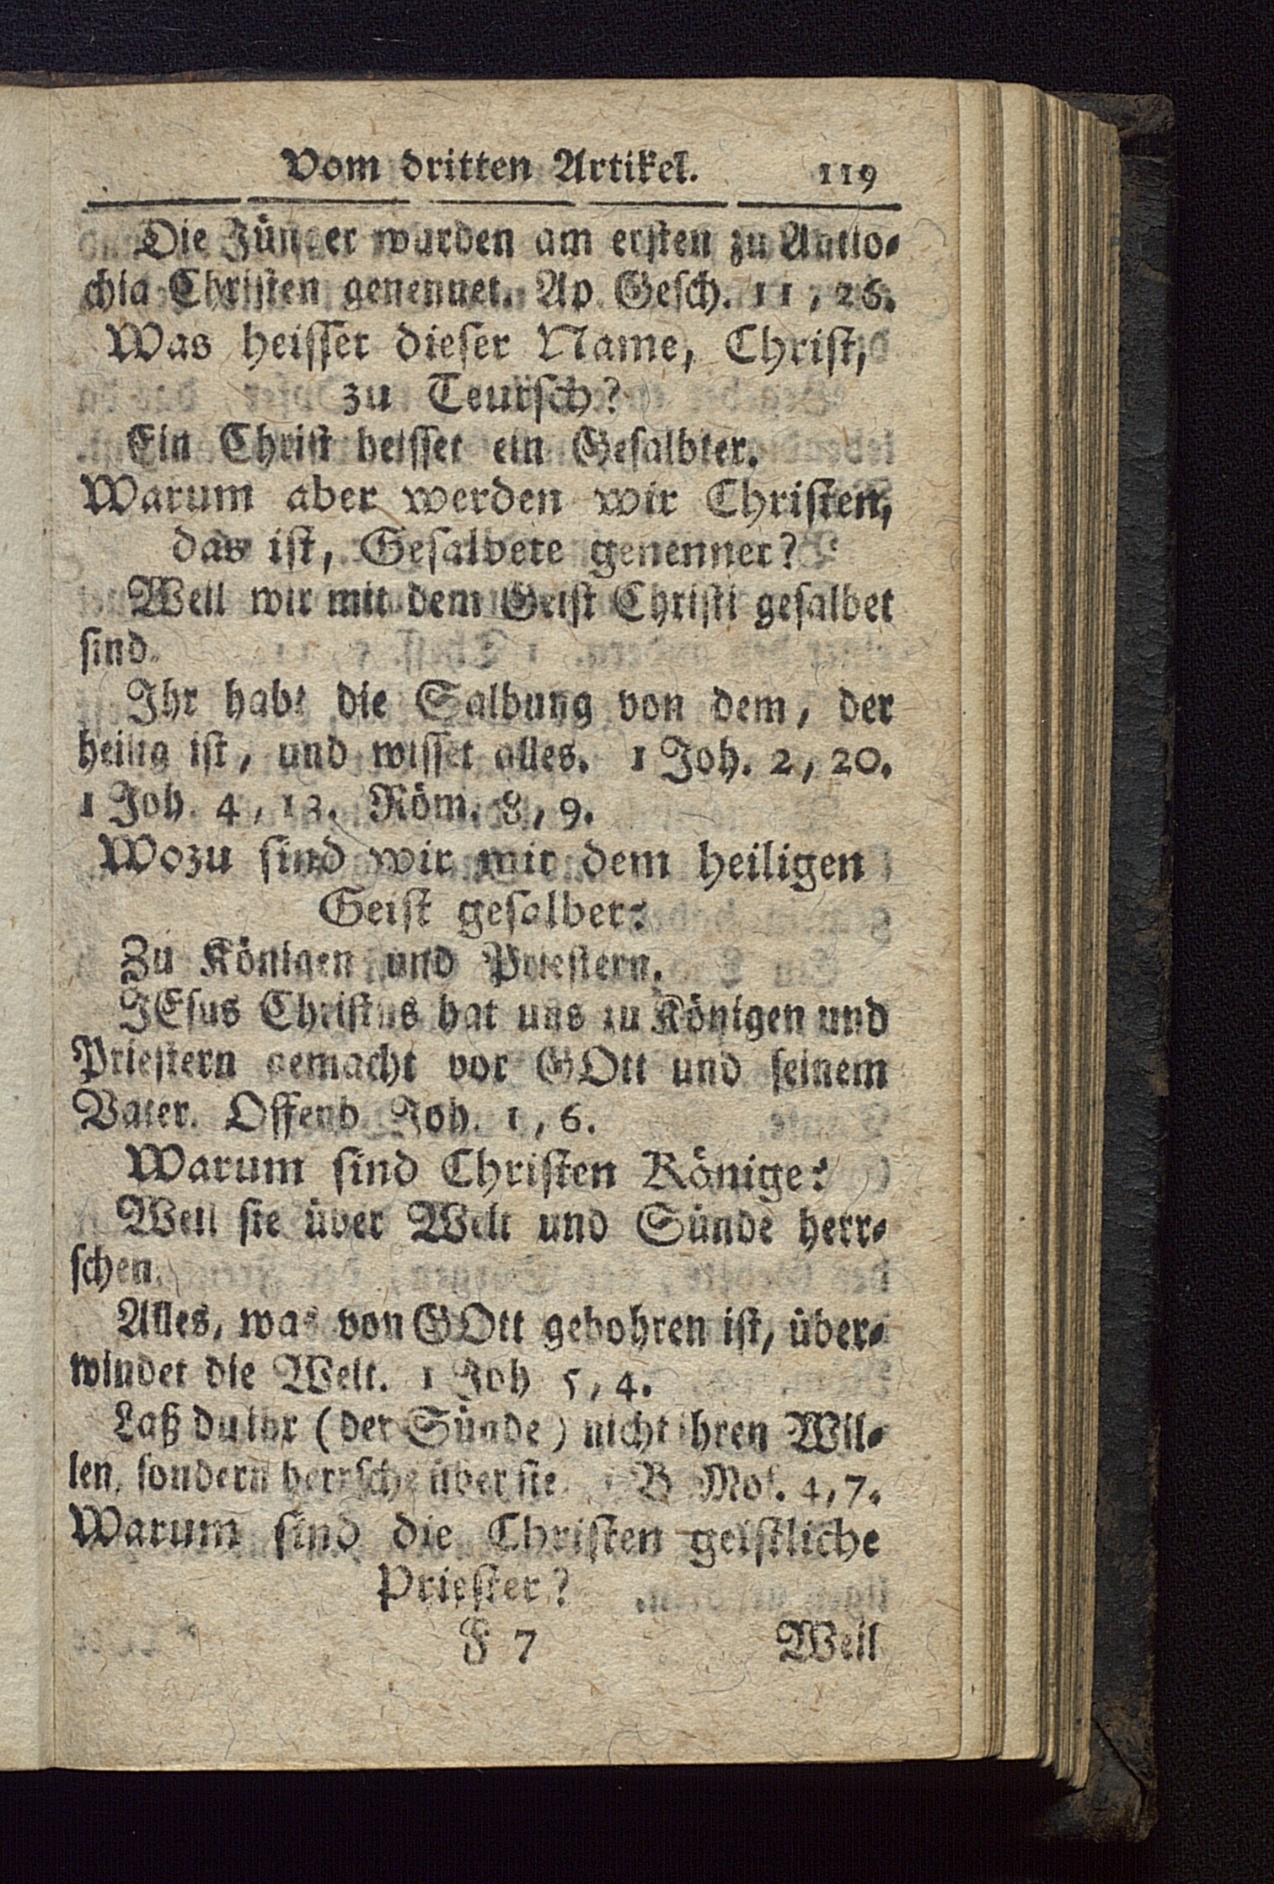 Vom dritten Artikel. 119
Die Jünger wurden am ersten zu Antio-
chia Christen genennet. Ap. Gesch. 11, 26.
Was heisset dieser Name, Christ,
zu Teutsch?
Ein Christ heisset ein Gesalbter.
Warum aber werden wir Christen,
das ist, Gesalbete genennet?
Weil wir mit dem Geist Christi gesalbet
sind.
Ihr habt die Salbung von dem, der
heilig ist, und wisset alles. 1 Joh. 2, 20.
1 Joh. 4, 13. Röm. 8, 9.
Wozu sind wir mit dem heiligen
Geist gesalbet?
Zu Königen und Priestern.
JEsus Christus hat uns zu Königen und
Priestern gemacht vor GOtt und seinem
Vater. Offenb. Joh. 1, 6.
Warum sind Christen Könige?
Weil sie über Welt und Sünde herr-
schen.
Alles, was von GOtt gebohren ist, über-
windet die Welt. 1 Joh 5, 4.
Laß du ihr (der Sünde) nicht ihren Wil-
len, sondern herrsche über sie. 1 B Mos. 4, 7.
Warum sind die Christen geistliche
Priester?
F 7 Weil